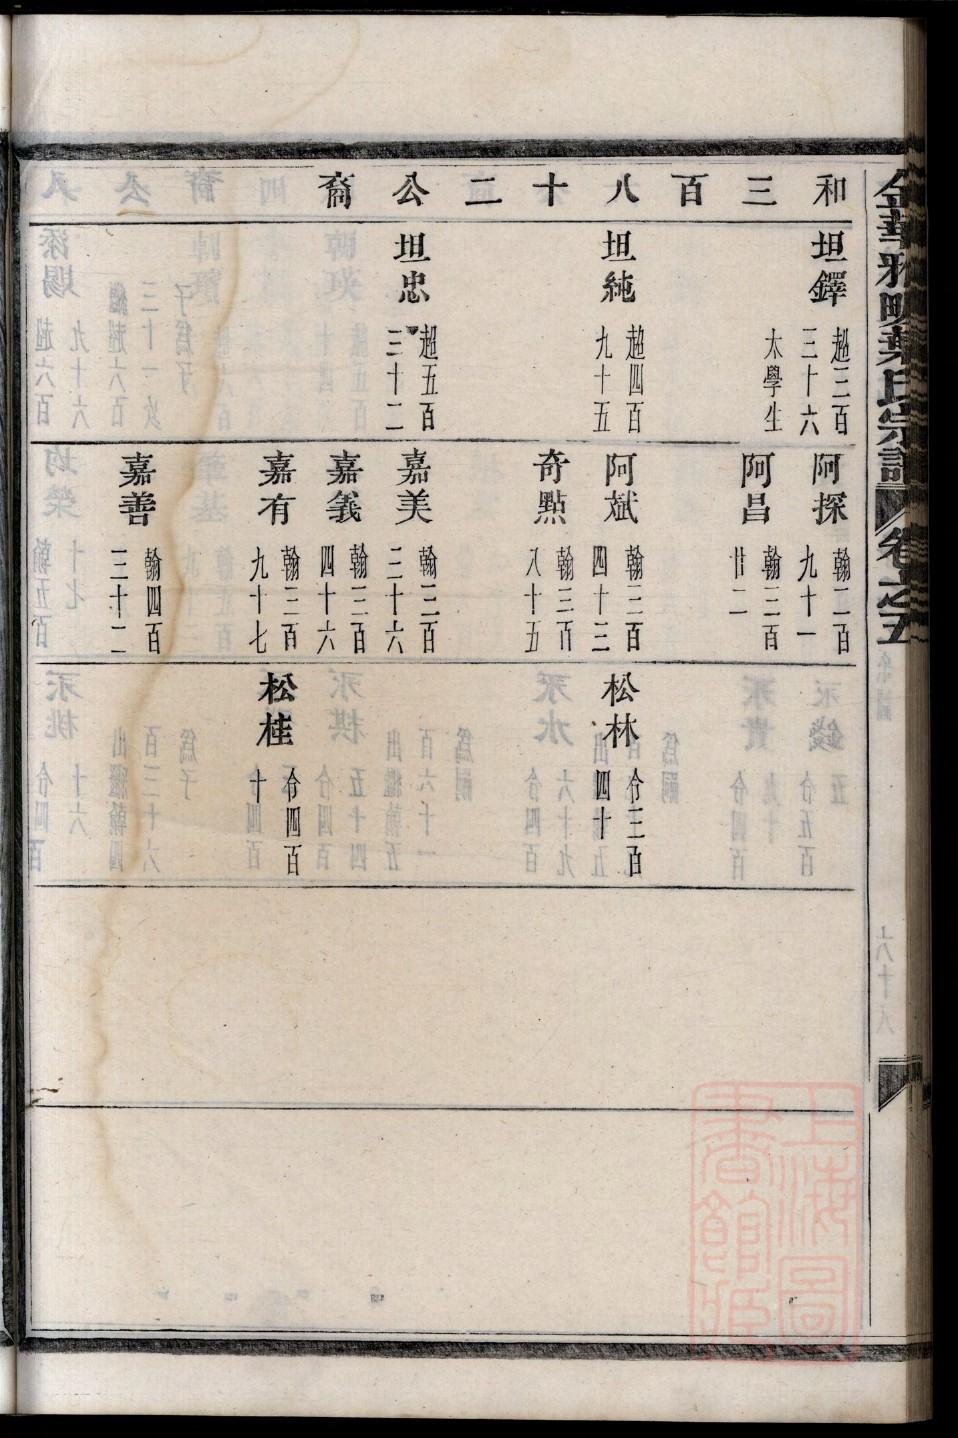 和三百八十二公裔
坦鐸
超三百
三十六
太學生
坦純
超四百
九十五
坦忠
超五百
三十二
阿探
翰二百
九十一
阿昌
翰三百
廿二
阿斌
翰三百
四十三
奇點
翰三百
八十五
嘉美
翰三百
三十六
嘉義
翰三百
四十六
嘉有
翰三百
九十七
嘉善
翰四百
三十二
松林
令三百
四十
松桂
令四百
十
葉氏宗譜
卷之五
上海圖書館藏